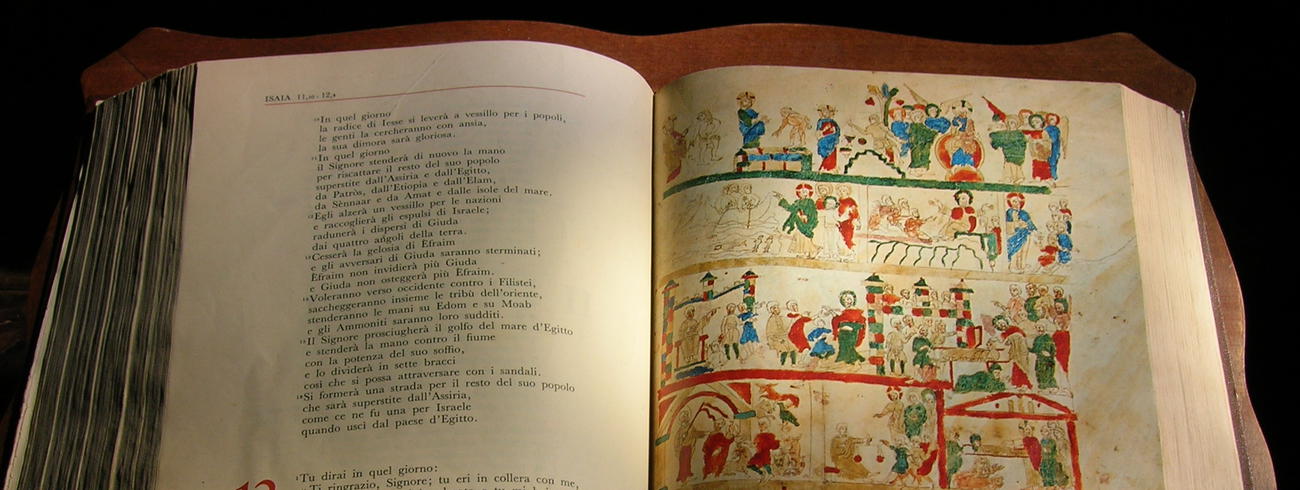 ISAIA 11,10 - 12,4
10In quel giorno
la radice di Iesse si leverà a vessillo per i popoli,
le genti la cercheranno con ansia,
la sua dimora sarà gloriosa.
11In quel giorno
il Signore stenderà di nuovo la mano
per riscattare il resto del suo popolo
superstite dall'Assiria e dall'Egitto,
da Patròs, dall'Etiopia e dall'Elam,
da Sènnaar e da Amat e dalle isole del mare.
12Egli alzerà un vessillo per le nazioni
e raccoglierà gli espulsi di Israele;
radunerà i dispersi di Giuda
dai quattro angoli della terra.
13Cesserà la gelosia di Efraim
e gli avversari di Giuda saranno sterminati;
Efraim non invidierà più Giuda
e Giuda non osteggerà più Efraim.
14Voleranno verso occidente contro i Filistei,
saccheggeranno insieme le tribù dell'oriente,
stenderanno le mani su Edom e su Moab
e gli Ammoniti saranno loro sudditi.
15Il Signore prosciugherà il golfo del mare d'Egitto
e stenderà la mano contro il fiume
con la potenza del suo soffio,
e lo dividerà in sette bracci
così che si possa attraversare con i sandali.
16Si formerà una strada per il resto del suo popolo
che sarà superstite dall'Assiria,
come ce ne fu una per Israele
quando uscì dal paese d'Egitto.
12
1Tu dirai in quel giorno:
Ti ringrazio, Signore; tu eri in collera con me,